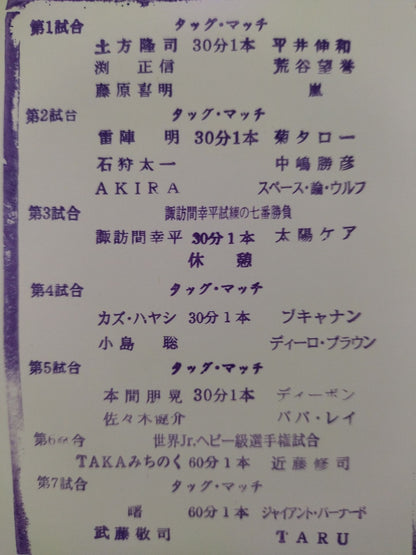 第1試合 タッグ・マッチ
土方隆司 30分1本 平井伸和
渕 正信 荒谷望誉
藤原喜明 嵐
第2試合 タッグ・マッチ
雷陣 明 30分1本 菊タロー
石狩太一 中嶋勝彦
AKIRA スペース・論・ウルフ
第3試合 諏訪間幸平試練の七番勝負
諏訪間幸平 30分1本 太陽ケア
休 憩
第4試合 タッグ・マッチ
カズ・ハヤシ 30分1本 ブキャナン
小島 聡 ディーロ・ブラウン
第5試合 タッグ・マッチ
本間朋晃 30分1本 ディーボン
佐々木健介 ババ・レイ
第6試合 世界Jr.ヘビー級選手権試合
TAKAみちのく 60分1本 近藤修司
第7試合 タッグ・マッチ
曙 60分1本 ジャイアント・バーナード
武藤敬司 TARU